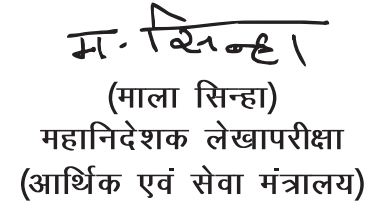 म. सिन्हा
(माला सिन्हा)
महानिदेशक लेखापरीक्षा
(आर्थिक एवं सेवा मंत्रालय)